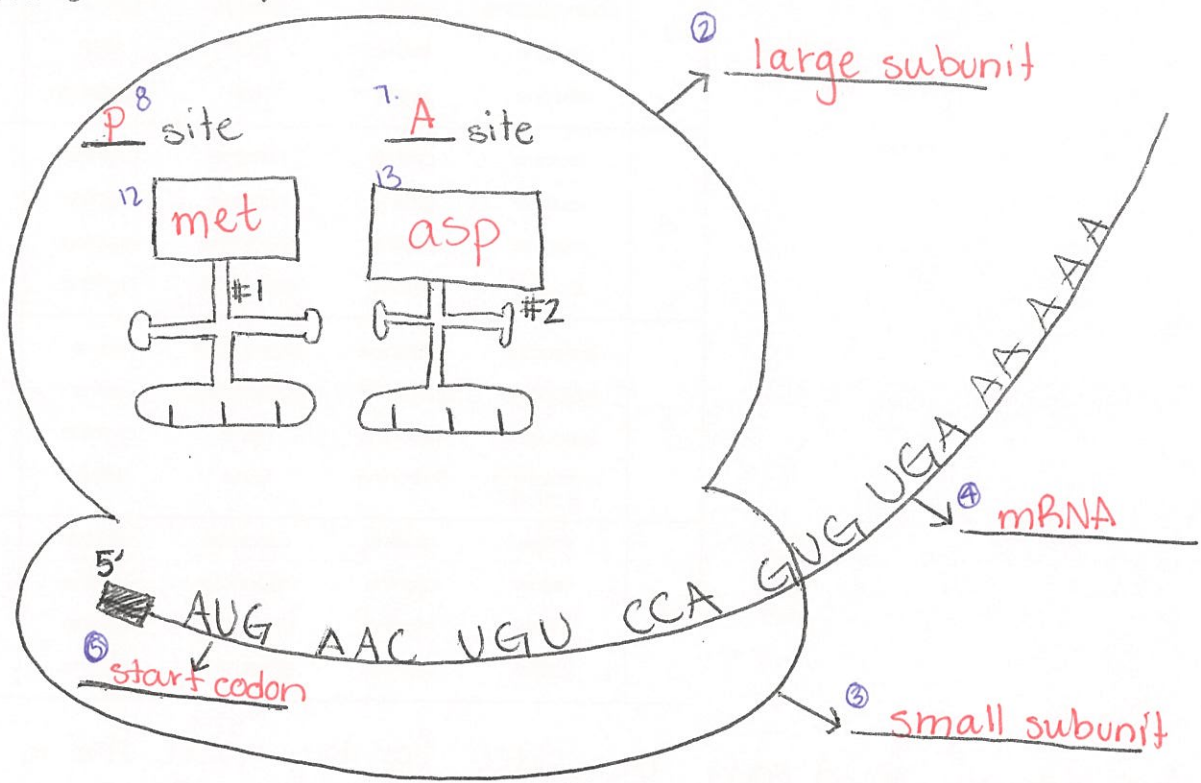 ② large subunit
P 8 site
7. A site
12 met
13 asp
#1
#2
④ mRNA
5'
AUG AAC UGU CCA GUG UGA AA AAAA
⑤ start codon
③ small subunit